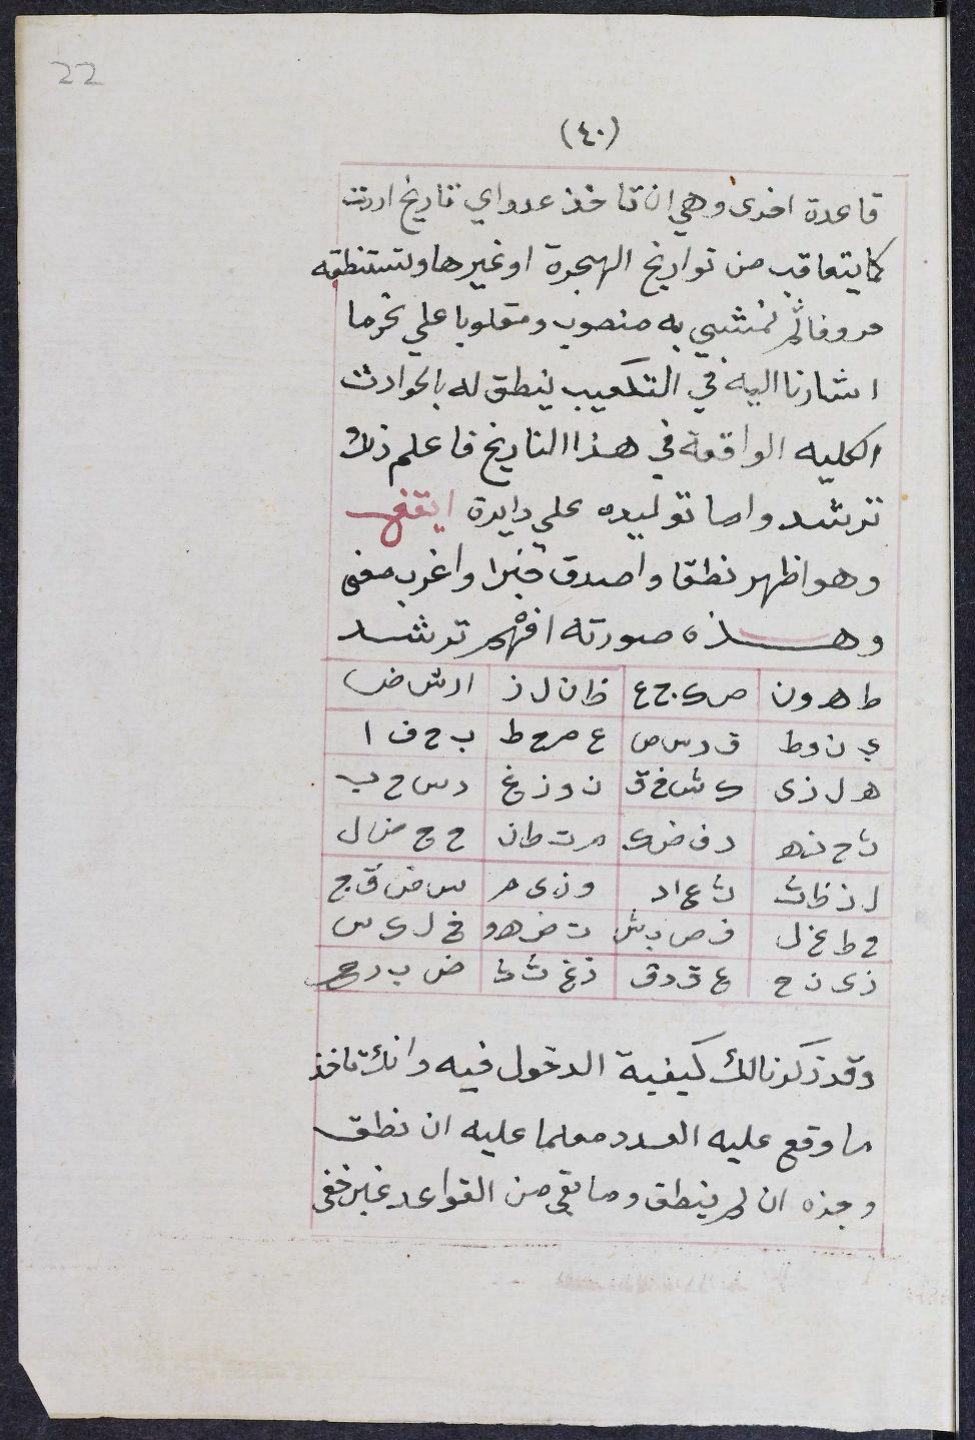 22
(٤٠)
قاعدة اخرى وهي ان تاخذ عدد اي تاريخ اردت
كما يتعاقب من تواريخ الهجرة او غيرها وتستنطقه
حروفا ثم تمشي به منصوب ومقلوبا على نحو ما
اشارنا اليه في التكعيب ينطق له بالحوادث
الكليه الواقعة في هذا التاريخ فاعلم ذلك
ترشد واما توليده على دايرة ايقغ
وهو اظهر نطقا واصدق خبرا واغرب معنى
وهذه صورته افهم ترشد
ط ه و ن ص ك ج ع ظ ن ل ز ا ر ش ض
ي ن و ط ق د س ص ع م ح ط ب ح ف ا
ه ل ز ى ك ش خ ق ن و ز غ د س ح ب
ث ح ذ ه د ف ض ك م ت ط ن ح ج ض ل
ل ذ ظ ث ث ع ا د و ز ى م س ض ق ج
ح ط غ ل ف ص ب ش ت ض ه و خ ل ك س
ز ى ن ح ع ق د ق ذ غ ث ث ض ب ر ح
وقد ذكرنا لك كيفية الدخول فيه وانك تاخذ
ما وقع عليه العدد معلما عليه ان نطق
وجذه ان لم ينطق وما بقي من القواعد غير خفى